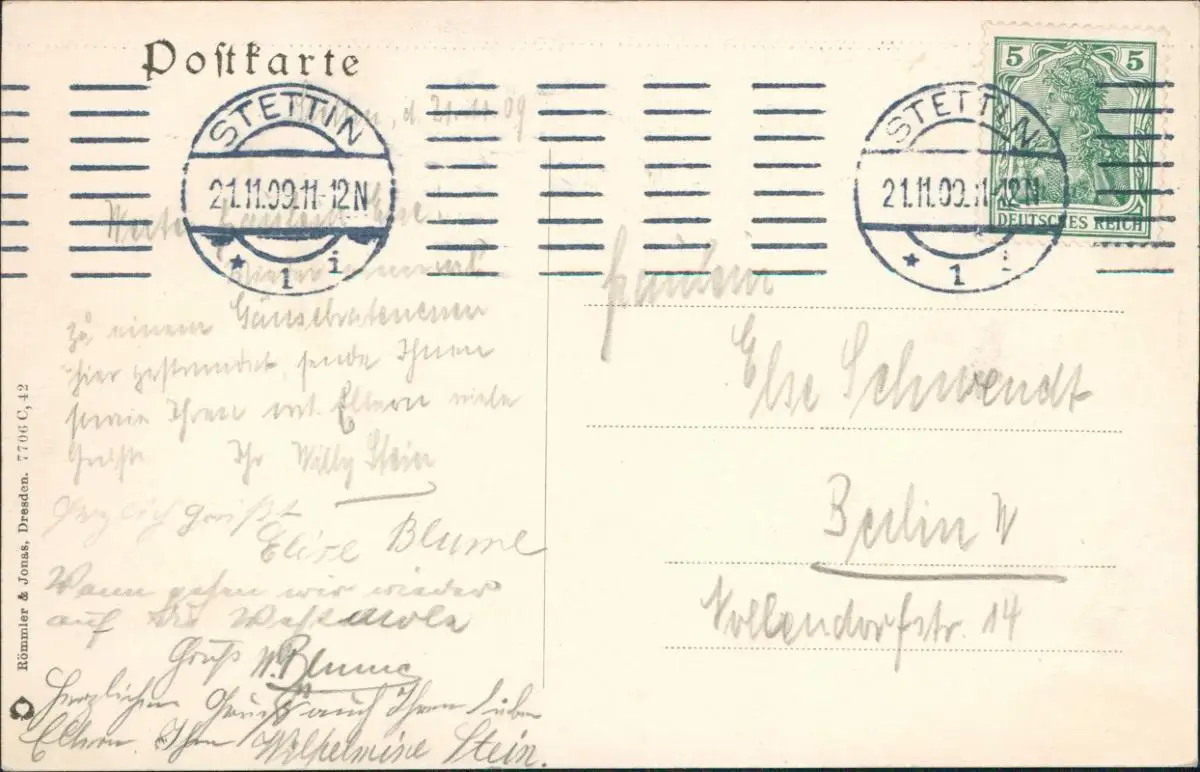 Postkarte
STETTIN
21.11.09.11-12N
* 1 i
STETTIN
21.11.09.11-12N
* 1 i
5 5
DEUTSCHES REICH
d. 21.11.09
Werte
zu einem Gänsebraten
hier gestrandet, sende Ihnen
sowie Ihren Eltern viele
Grüße Ihr Willy Stein
Herzlich grüßt
Elise Blume
Wann gehen wir wieder
auf die Westmole
Gruß W. Blume
Herzlichen Gruß auch Ihren lieben
Eltern Ihre Wilhelmine Stein.
Fräulein
Else Schwendt
Berlin W
Nollendorfstr. 14
Römmler & Jonas, Dresden. 7706 C, 42